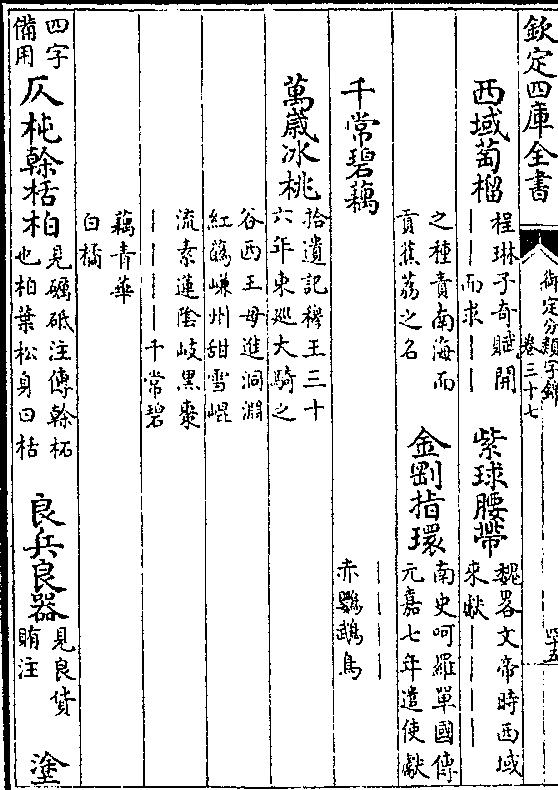 欽定四庫全書
御定分類字錦
卷三十七
四十五
西域萄榴
程琳子奇賦開
——而求——
之種責南海而
貢蕉荔之名
紫球腰帶
魏畧文帝時西域
來獻————
金剛指環
南史呵羅單國傳
元嘉七年遣使獻
————
赤鸚鵡鳥
千常碧藕
萬歲冰桃
拾遺記穆王三十
六年東巡大騎之
谷西王母進洞淵
紅蘤嵰州甜雪崐
流素蓮陰岐黑棗
————千常碧
藕青華
白橘
四字
備用
仄杶榦栝柏
見礪砥注傳榦柘
也柏葉松身曰栝
良兵良器
見良貨
賄注
塗